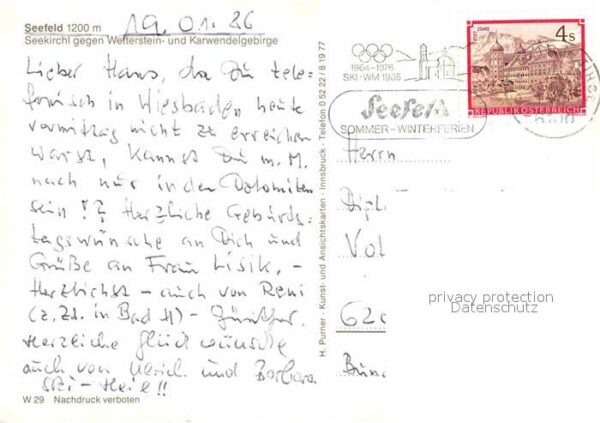 19.01.86
Seefeld 1200 m
Seekirchl gegen Wetterstein- und Karwendelgebirge
Lieber Hans, da Du tele-
fonisch in Wiesbaden heute
vormittag nicht zu erreichen
warst, kannst Du m. M.
nach nur in den Dolomiten
sein!? Herzliche Geburts-
tagswünsche an Dich und
Grüße an Frau Lisik. –
Herzlichst – auch von Reni
(z. Zt. in Bad H) – Günther.
Herzliche Glückwünsche
auch von Ulrich und Barbara
Ski-Heil!!
W 29 Nachdruck verboten
H. Purner · Kunst- und Ansichtskarten · Innsbruck · Telefon 0 52 22 / 8 19 77
1964-1976
SKI-WM 1985
Seefeld
SOMMER - WINTERFERIEN
STIFT STAMS
4 S
REPUBLIK ÖSTERREICH
Herrn
Dipl
Vol
privacy protection
Datenschutz
620
Bün